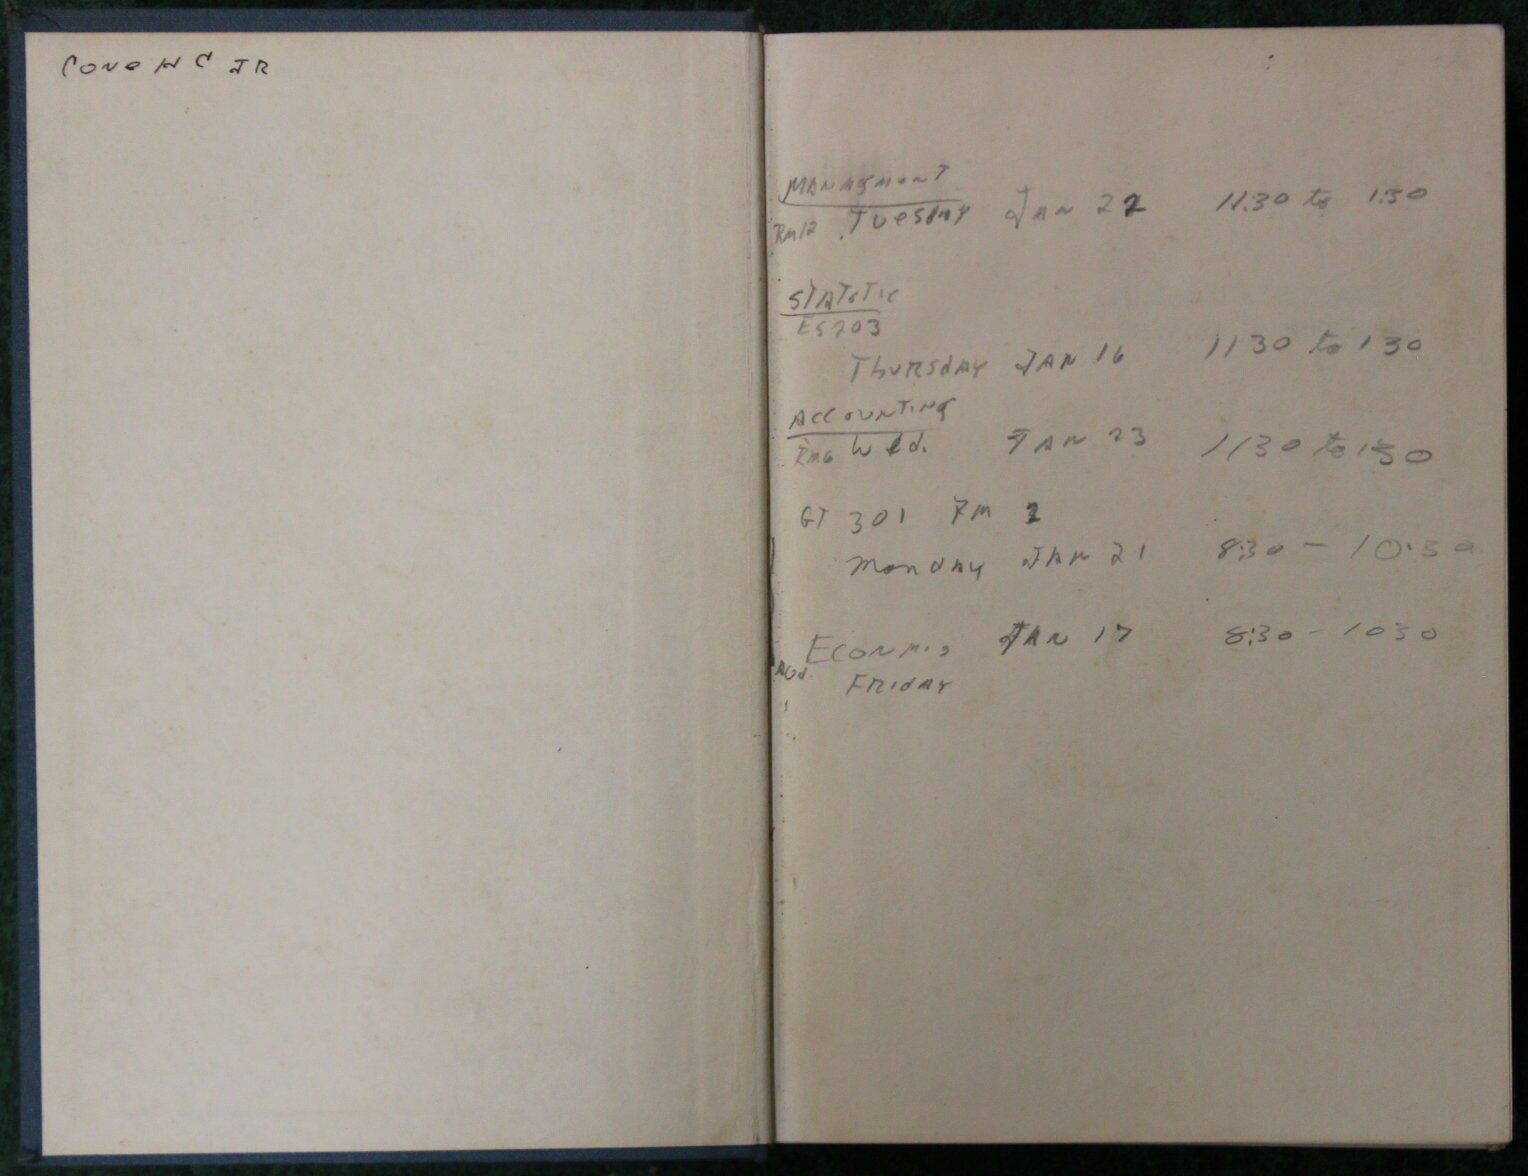 Cone H C JR
MANAGMENT
Rm 12 Tuesday JAN 22 11:30 to 1:30
STATSTIC
ES 203
Thursday JAN 16 11 30 to 1 30
ACCOUNTING
Rm 6 Wed. JAN 23 11 30 to 1 30
GT 301 RM 2
Monday JAN 21 8:30 - 10:30
JAN 17 8:30 - 10 30
FRIDAY